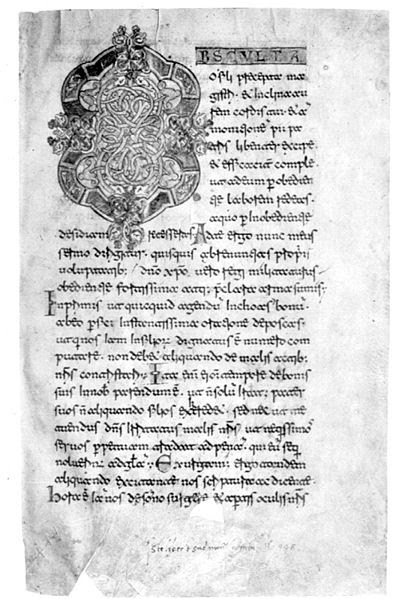 OBSCULTA
o fili precepta ma
gistri. & inclina au
rem cordis tui. & ad
monitionē pii pa
tris libenter excipe
& efficaciter comple.
ut ad eum p obedien
tie laborem redeas.
a quo p inobedientie
desidiam recesseras. Ad te ergo nunc meus
sermo dirigitur. quisquis abrenuntians propriis
voluptatib; dno xpo. vero regi militaturus.
obedientie fortissima atq; preclara arma sumis.
Inprimis ut quicquid agendū inchoas bonū.
ab eo perfici instantissima oratione deposcas.
ut qui nos iam in filiorū dignatus ē numero com
putare. non debet aliquando de malis actib;
nris contristari. Ita enī ei omi tempore de bonis
suis in nob parendum ē. ut ñ solū iratus pater
suos ñ aliquando filios exheredet. sed nec ut me
tuendus dns irritatus malis nris. ut nequissimos
servos perpetuam tradat ad penam. qui eū sequi
noluerint ad gliam. Exurgamus ergo tandem
aliquando excitante nos scriptura ac dicente.
hora ē iam nos de somno surgere. & apertis oculis nris